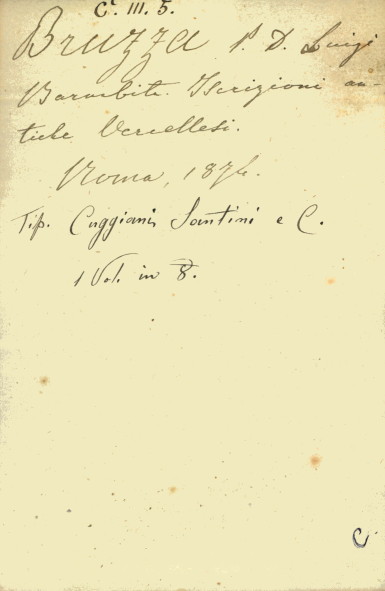 C. III. 5.
Bruzza P. D. Luigi
Barnabita. Iscrizioni an-
tiche Vercellesi.
Roma, 1874.
Tip. Cuggiani, Santini e C.
1 Vol. in 8.
C